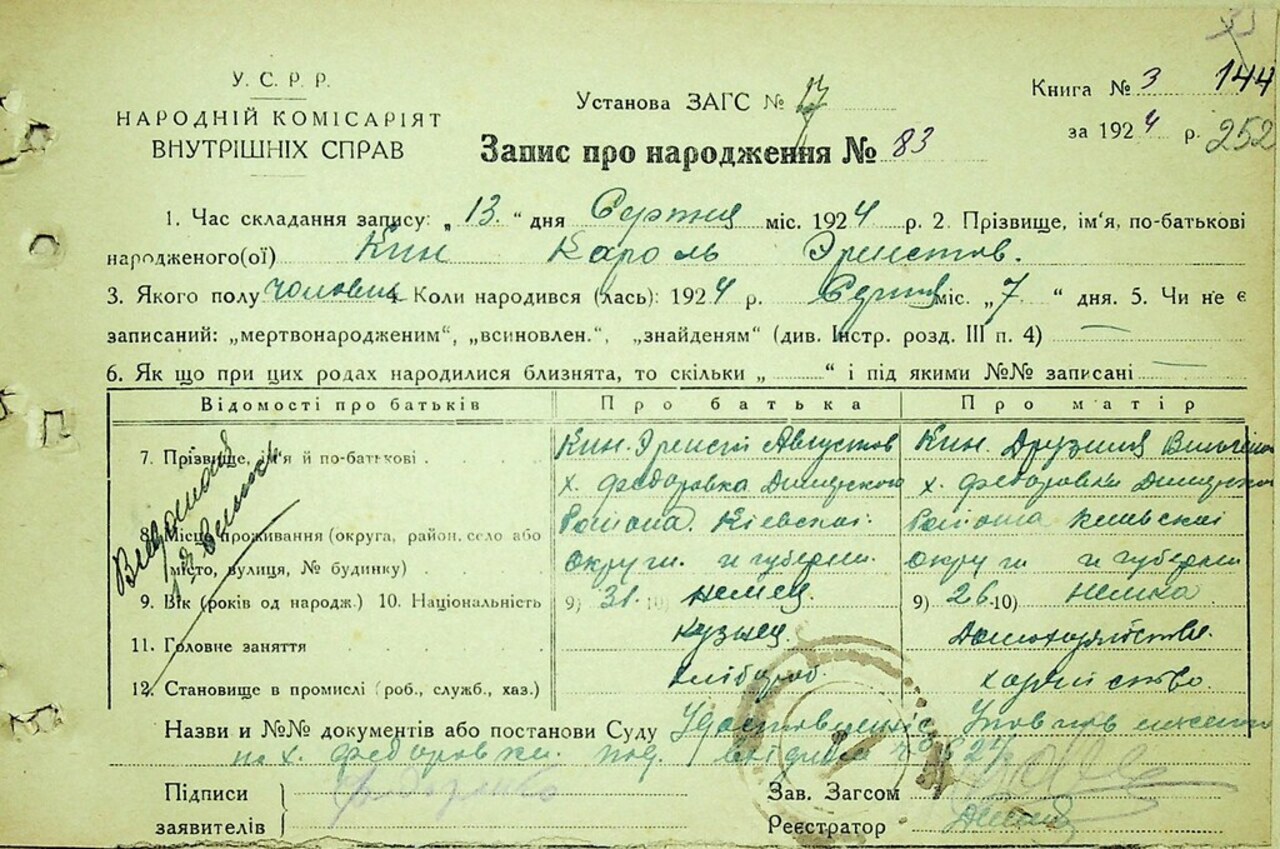 У. С. Р. Р.
НАРОДНІЙ КОМІСАРІЯТ
ВНУТРІШНІХ СПРАВ
Установа ЗАГС № 17
Книга № 3 144
за 1924 р. 252
Запис про народження № 83
1. Час складання запису: „13.“ дня Серпня міс. 1924 р. 2. Прізвище, ім'я, по-батькові
народженого(ої) Кин Кароль Эрнстов.
3. Якого полу чоловіч 4. Коли народився (лась): 1924 р. Серпня міс. „7“ дня. 5. Чи не є
записаний: „мертвонародженим“, „всиновлен.“, „знайденям“ (див. Інстр. розд. III п. 4) —
6. Як що при цих родах народилися близнята, то скільки „ “ і під якими №№ записані —
Відомості про батьків Про батька Про матір
7. Прізвище, ім'я й по-батькові Кин. Эрнст Августов Кин.
8. Місце проживання (округа, район, село або місто, вулиця, № будинку)
х. Федоровка Дымерского х. Федоровка Дымерского
Района. Киевской Района Киевской
округи. и губернии округи и губернии
9. Вік (років од народж.) 10. Національність 9) 31. 10) немец. 9) 26. 10) немка
11. Головне заняття кузнец.
12. Становище в промислі (роб., служб., хаз.) хлібороб.
Назви и №№ документів або постанови Суду
по х. Федоровки
Підписи
заявителів
Зав. Загсом
Реєстратор